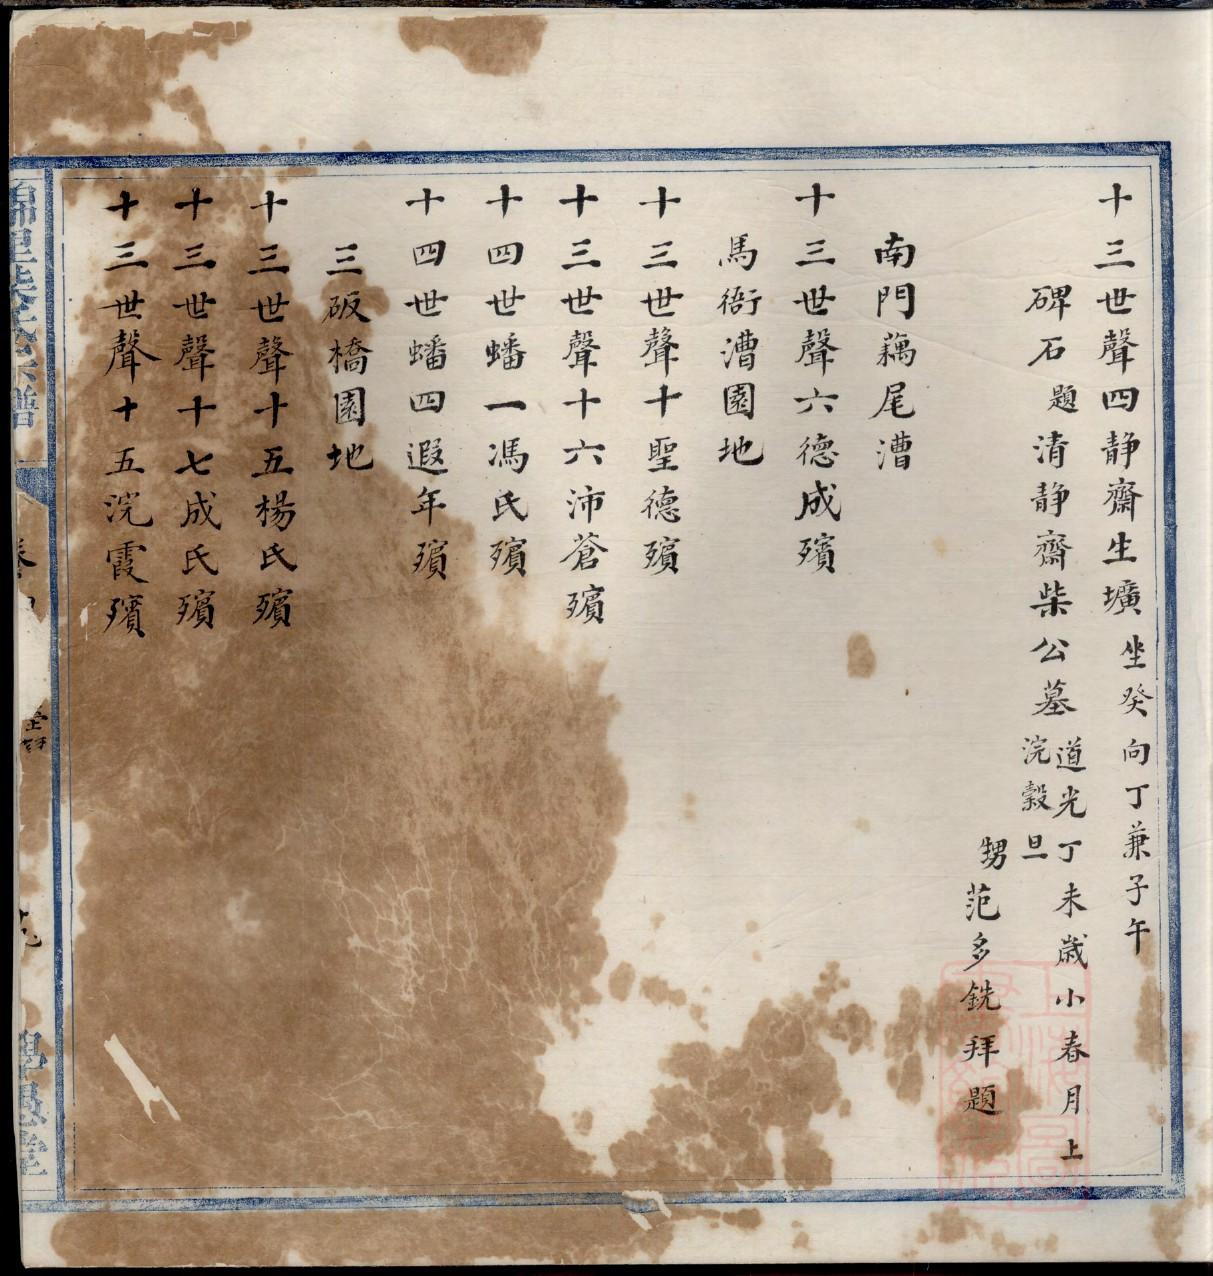 十三世聲四静齋生壙坐癸向丁兼子午
碑石題清静齋柴公墓道光丁未歲小春月上
浣穀旦
甥范多銑拜題
南門藕尾漕
十三世聲六德成殯
馬衙漕園地
十三世聲十聖德殯
十三世聲十六沛蒼殯
十四世蟠一馮氏殯
十四世蟠四遐年殯
三砇橋園地
十三世聲十五楊氏殯
十三世聲十七成氏殯
十三世聲十五浣霞殯